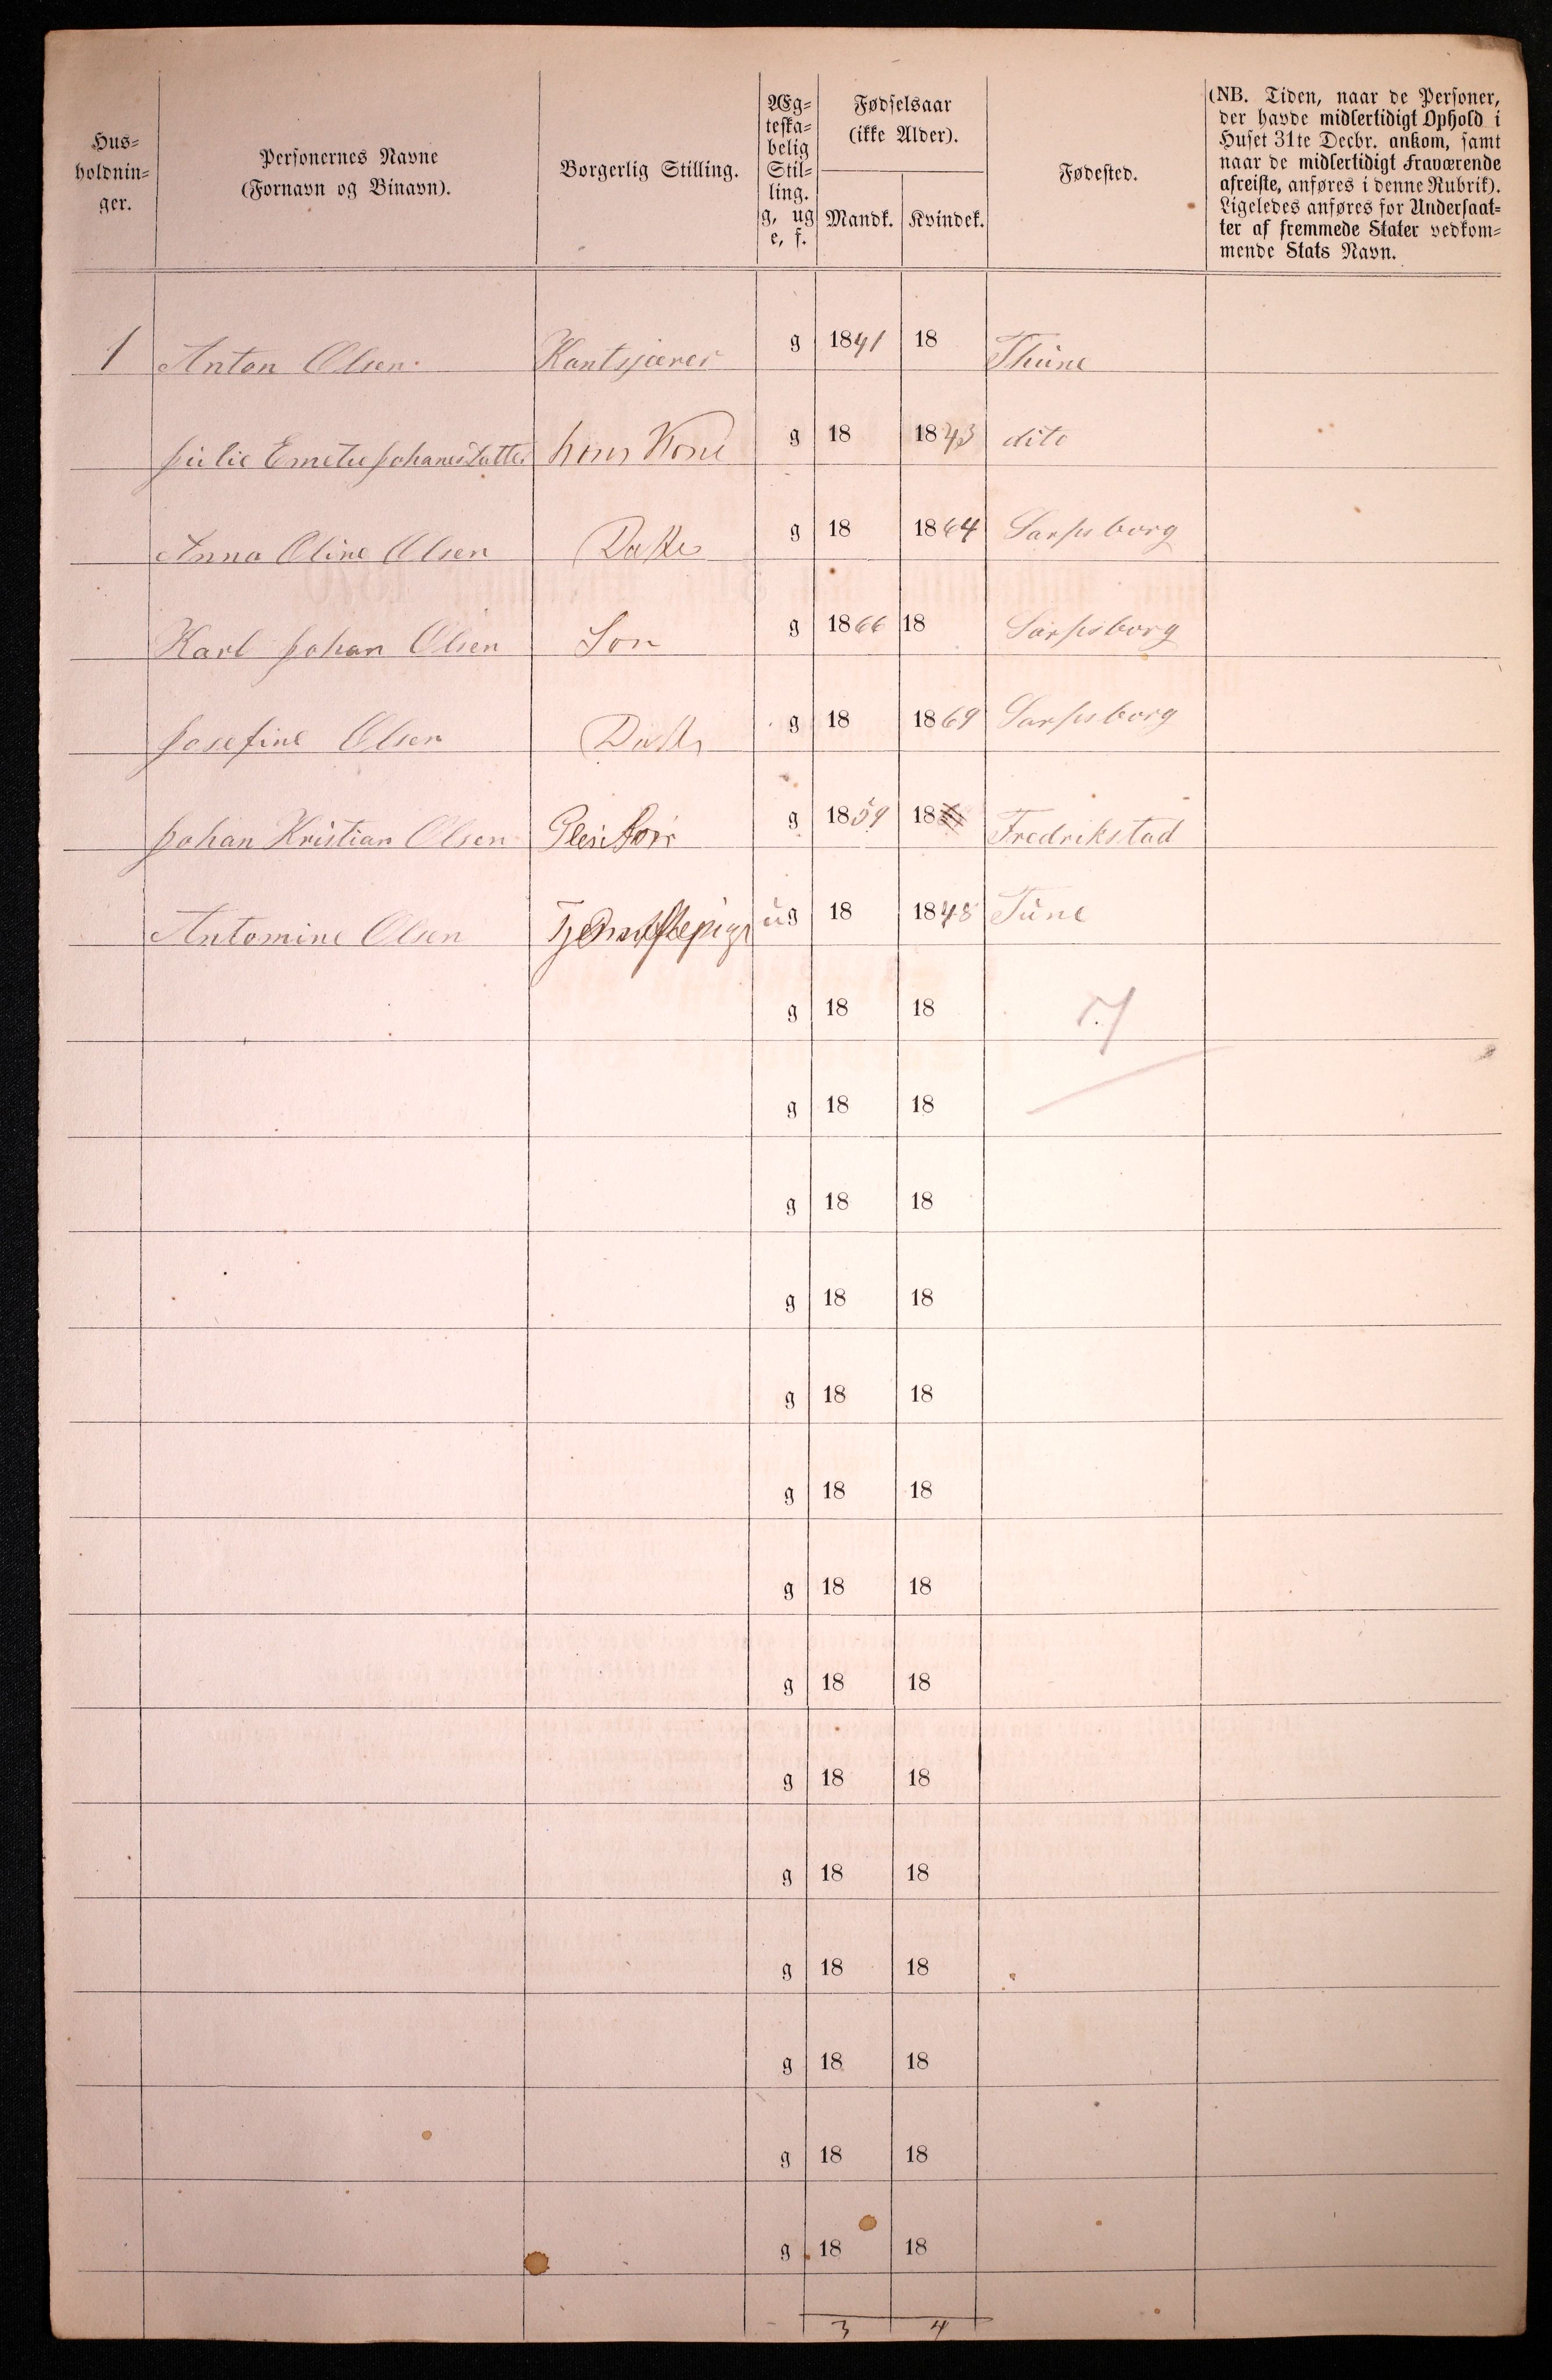 Hus=
holdnin=
ger.
Personernes Navne
(Fornavn og Binavn).
Borgerlig Stilling.
Æg=
teska=
belig
Stil=
ling.
g, ug
e, f.
Fødselsaar
(ikke Alder).
Mandk. Kvindek.
Fødested.
(NB. Tiden, naar de Personer,
der havde midlertidigt Ophold i
Huset 31te Decbr. ankom, samt
naar de midlertidigt Fraværende
afreiste, anføres i denne Rubrik).
Ligeledes anføres for Undersaat=
ter af fremmede Stater vedkom=
mende Stats Navn.
1 Anton Olsen Kantsjører g 1841 18 Thüne
Julie Johanesdatter hans Kone g 18 1843 dito
Anna Oline Olsen Datter g 18 1864 Sarpsborg
Karl Johan Olsen Son g 1866 18 Sarpsborg
Josefine Olsen Datter g 18 1869 Sarpsborg
Johan Kristian Olsen Pleiesön g 1859 18 Fredrikstad
Antomine Olsen Tjenestepige ug 18 1848 Tüne
g 18 18 7
g 18 18
g 18 18
g 18 18
g 18 18
g 18 18
g 18 18
g 18 18
g 18 18
g 18 18
g 18 18
g 18 18
g 18 18
g 18 18
3 4